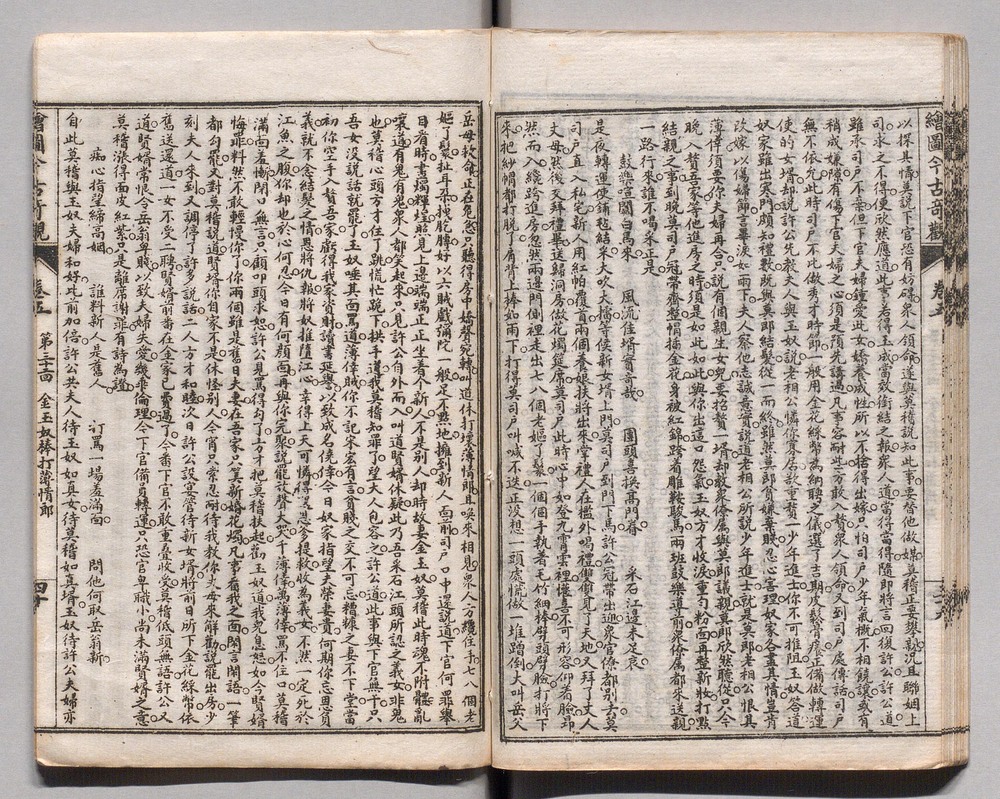 繪圖今古奇觀 卷五
以探其情莫說下官恐有妨礙眾人領命遂與莫稽說知此事要替他做媒莫稽正要攀高況且聯姻上
司求之不得便欣然應道此事若得玉成當效銜結之報眾人道當得當得隨即將言回復許公許公道
雖承司戶不棄但下官夫婦鍾愛此女嬌養成性所以不捨得出嫁只怕司戶少年氣概不相饒讓或有
稍成嫌隙有傷下官夫婦之心須是預先講過凡事容耐些方敢入贅眾人領命又到司戶處傳話司戶
無不依允此時司戶不比做秀才時節一般用金花綵幣為納聘之儀選了吉期皮鬆骨癢正備做轉運
使的女壻却說許公先教夫人與玉奴說老相公憐你寡居欲重贅一少年進士你不可推阻玉奴答道
奴家雖出寒門頗知禮數既與莫郎結髮從一而終雖然莫郎貧嫌賤棄忍心害理奴家各盡其情豈肯
改嫁以傷婦節言畢淚如雨下夫人察他志誠意實說道老相公所說少年進士就是莫郎老相公恨其
薄倖須要你夫婦再合只說有個親生女兒要招贅一壻却教眾僚屬與莫郎議親莫郎欣然聽從只今
晚入贅吾家等他進房之時須是如此如此與你出這口怨氣玉奴方才收淚重勻粉面再整新妝打點
結親之事到晚莫司戶冠帶齊整帽插金花身披紅錦跨着雕鞍駿馬兩班鼓樂道前眾僚屬都來送親
一路行來誰不喝采正是
鼓樂喧闐白馬來 風流佳壻實奇哉 團頭喜換高門眷 采石江邊未足哀
是夜轉運使鋪氈結采大吹大擂等候新女壻上門莫司戶到門下馬許公冠帶出迎眾官僚都別去莫
司戶直入私宅新人用紅帕覆首兩個養娘扶將出來掌禮人在檻外喝禮雙雙拜了天地又拜了丈人
丈母然後交拜禮畢送歸洞房做花燭筵席莫司戶此時心中如登九霄雲裡懽喜不可形容仰着臉昂
然而入纔跨進房忽然兩邊門側裡走出七八個老嫗了鬟一個個手執着毛竹細棒劈頭劈臉打將下
來把紗帽都打脫了肩背上棒如雨下打得莫司戶叫喊不迭正沒想一頭處慌做一堆蹭倒大叫岳父
岳母救命正在危急只聽得房中嬌聲宛轉叫道休打壞薄情郎且喚來相見眾人方纔住手七八個老
嫗了鬟扯耳朵拽肐膊好似六賊戲彌陀一般足不點地擁到新人面前司戶口中還說道下官何罪舉
目看時畫燭輝煌照見上邊端端正正坐着個新人不是別人却時故妻金玉奴莫稽此時魂不附體亂
嚷道有鬼有鬼眾人都笑起來只見許公自外而入叫道賢婿休疑此乃吾采石江頭所認之義女非鬼
也莫稽心頭方才住了跳慌忙跪下拱手道我莫稽知罪了望大人包容之許公道此事與下官無干只
吾女沒說話就罷了玉奴唾其面罵道薄倖賊你不記宋宏有言貧賤之交不可忘糟糠之妻不下堂當
初你空手入贅吾家虧得我家資財讀書延譽以致成名僥倖今日奴家指望夫榮妻貴何期你忘恩負
義就不念結髮之情恩將仇報將奴推墮江心幸得上天可憐得遇恩爹提救收為義女不然一定死於
江魚之腹你却也於心何忍今日有何顏面再與你完聚說罷放聲大哭千薄倖萬薄倖罵不住口莫稽
滿面羞慚閉口無言只顧叩頭求恕許公見罵得勾了方才把莫稽扶起勸玉奴道我兒息怒如今賢婿
悔罪料然不敢輕慢你了你兩個雖是舊日夫妻在吾家只算新婚花燭凡事有我之面閑言閑語一筆
都勾罷又對莫稽說道賢婿你自家不是休怪別人今宵只索忍耐待我教你丈母來解勸說罷出房少
刻夫人來到又調停了許多說話二人方才和睦次日許公設宴管待新女壻將前日所下金花綵幣依
舊送還道一女不受二聘賢婿前番在金家已費過了今番下官不敢重疊收受莫稽低頭無語許公又
道賢婿常恨令岳翁卑賤以致夫婦失愛幾乖倫理今下官備員轉運只恐官卑職小尚未滿賢婿之意
莫稽漲得面皮紅紫只是離席謝罪有詩為證
痴心指望締高姻 誰料新人是舊人 訂罵一場羞滿面 問他何取岳翁新
自此莫稽與玉奴夫婦和好比前加倍許公共夫人待玉奴如真女待莫稽如真壻玉奴待許公夫婦亦
繪圖今古奇觀 卷五 第三十二回 金玉奴棒打薄情郎